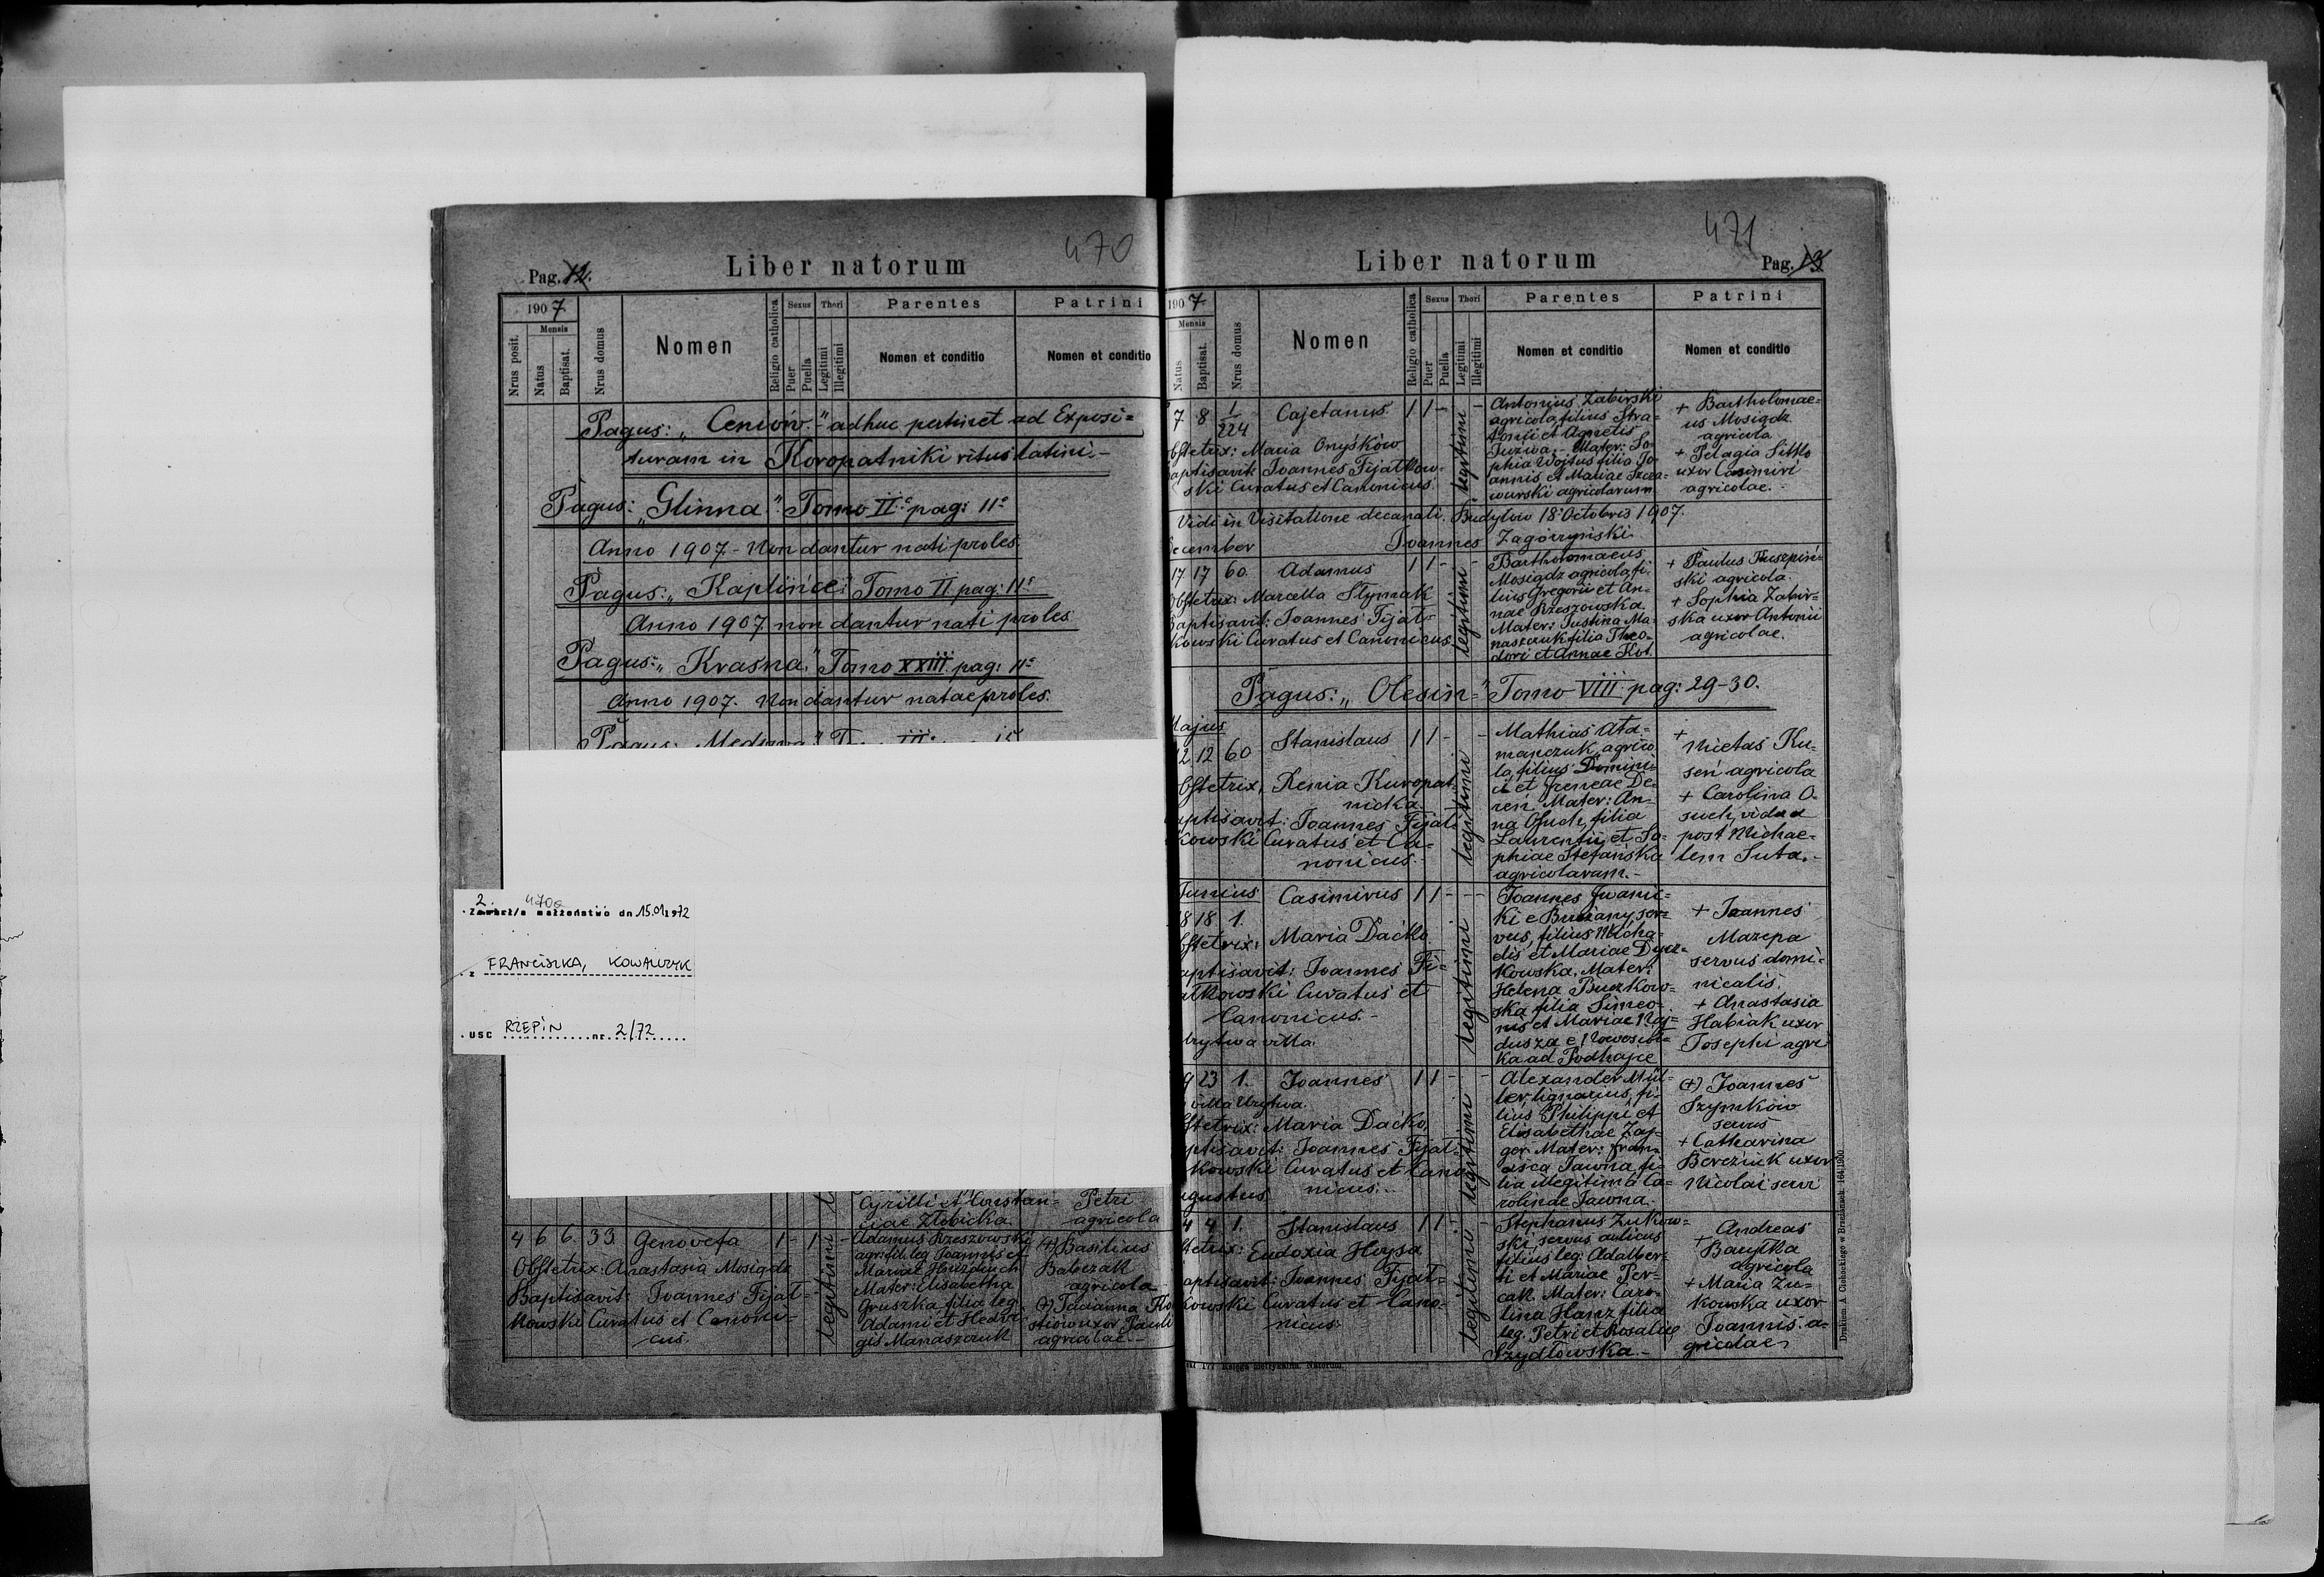 470
Pag. 12.
Liber natorum
1907
Nrus posit.
Mensis
Natus
Baptisat.
Nrus domus
Nomen
Religio catholica
Sexus
Puer
Puella
Thori
Legitimi
Illegitimi
Parentes
Nomen et conditio
Patrini
Nomen et conditio
Pagus: „Ceniów." adhuc pertinet ad Exposi=
turam in Koropatniki ritus latini.-
Pagus: „Glinna" Tomo II° pag: 11°
Anno 1907 - Non dantur nati proles.
Pagus: „Kaplińce" Tomo II pag: 11°
Anno 1907 non dantur nati proles
Pagus: „Krasna" Tomo XXIII pag: 11°
Anno 1907. Non dantur natae proles.
2. 470a
Zawarł/a małżeństwo dn 15.01.1972
z FRANCISZKA, KOWALCZYK
USC RZEPIN nr. 2/72
Cyrilli et Constan=
ciae Złobicka
Petri
agricola
4 6 6. 33 Genovefa 1 - 1 -
legitimi
Adamus Rzeszowski
agr. fil. leg Joannis et
Mariae
Mater: Elisabetha
Gruszka filia leg.
Adami et Hedvi=
gis Manaszczuk
(+) Basilius
Babczak
agricola
uxor Pauli
agricolae.-
Obstetrix: Anastasia Mosigdz
Baptisavit: Joannes Fijał=
kowski Curatus et Canoni=
cus.
471
Liber natorum
Pag. 13
1907
Mensis
Natus
Baptisat.
Nrus domus
Nomen
Religio catholica
Sexus
Puer
Puella
Thori
Legitimi
Illegitimi
Parentes
Nomen et conditio
Patrini
Nomen et conditio
7 8 1/224 Cajetanus 1 1 - -
legitimi
bstetrix: Maria Onyśków
aptisavit Joannes Fijałkow=
ski Curatus et Canonicus.
Antonius Zabirski
agricola, filius Stra=
tonii et Agnetis
Juzwa.- Mater: So=
phia Wojtus filia Jo=
annis et Mariae
agricolarum
+ Bartholomae=
us Mosigdz
agricola.
+ Pelagia Sitko
uxor Casimiri
agricolae.-
Vidi in Visitatione decanali. Budyłow 18 Octobris 1907.
Joannes Zagórzyński
ecember
17 17 60. Adamus 1 1 - -
legitimi
Obstetrix: Marcella Stymak
Baptisavit: Joannes Fijał=
kowski Curatus et Canonicus.
Bartholomaeus
Mosigdz agricola, fi=
lius Gregorii et An=
nae Rzeszowska
Mater: Justina Ma=
naszczuk filia Theo=
dori et Annae Kot.
+ Paulus
ski agricola.
+ Sophia Zabir=
ska uxor Antonii
agricolae.
Pagus: „Olesin" Tomo VIII pag: 29-30.
Majus
12 12 60 Stanislaus 1 1 - -
legitimi
bstetrix, Xenia Kuropat
nicka.
aptisavit: Joannes Fijał=
kowski Curatus et Ca=
nonicus.-
Mathias Ata=
manczuk, agrico=
la, filius Domini=
ci et Ireneae De=
ren. Mater: An=
na Osuch, filia
Laurentii et So=
phiae Stefańska
agricolarum.-
+
Nicetas Ku=
seń agricola
+ Carolina O=
such, vidua
post Michae=
lem Suta.-
Junius
18 18 1. Casimirus 1 1 - -
legitimi
bstetrix: Maria Daćko.
aptisavit: Joannes Fi=
ałkowski Curatus et
Canonicus.-
villa.
Joannes Iwanic=
ki e Brzeżany, ser=
vus, filius Micha=
elis et Mariae
kowska. Mater:
Helena Buczkow=
ska filia Simeo=
nis et Mariae Naj=
dusza e Nowosioł=
ka ad Podhajce
+ Joannes
Mazepa
servus domi=
nicalis.
+ Anastasia
Habiak uxor
Josephi agri
9 23 1. Joannes 1 1 - -
legitimi
villa Urytwa.
stetrix: Maria Daćko,
ptisavit: Joannes Fijał=
kowski Curatus et Cano
nicus.-
Alexander Mül=
ler, lignarius, fi=
lius Philippi et
Elisabethae Zaj=
ger Mater: Fran=
cisca Jawna, fi=
lia illegitima Ca=
rolinae Jawna.
(+) Joannes
Szymków
servus
+ Catharina
Bereziuk uxor
Nicolai servi
ugustus
4 4 1. Stanislaus 1 1 - -
legitimi
stetrix: Eudoxia Hrysa
aptisavit: Joannes Fijał=
kowski Curatus et Cano=
nicus.
Stephanus Zukow=
ski, servus aulicus
filius leg: Adalber=
ti et Mariae Per=
cak. Mater: Caro=
lina Hanz filia
leg. Petri et Rosaliae
Szydłowska.-
Andreas
+
agricola
+ Maria Zu=
kowska uxor
Joannis a=
gricolae.
Księga metrykalna. Natorum.
Drukiem A. Chohockiego w Brzeżanach. 164|1900.